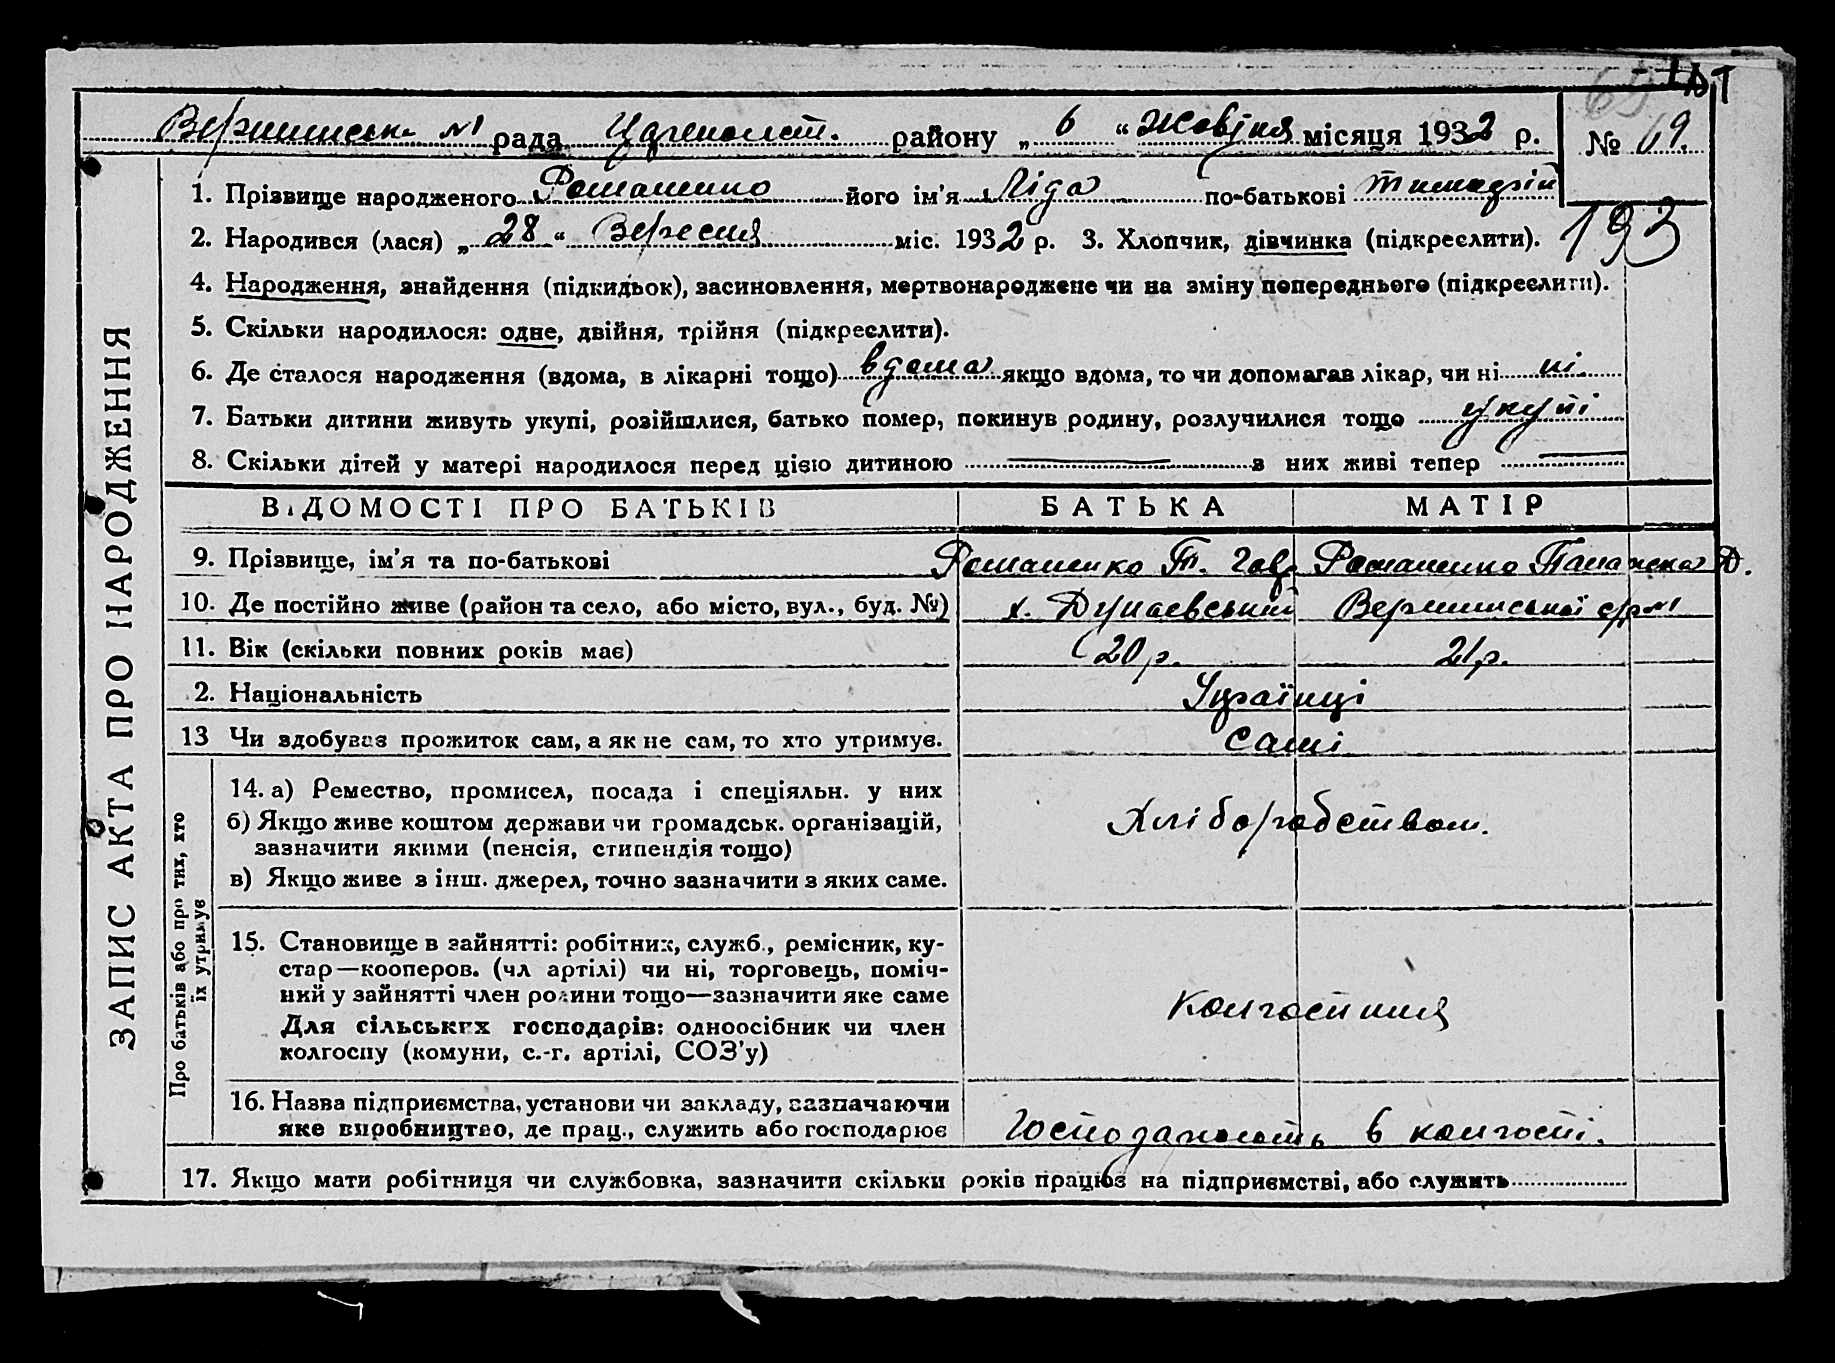 Вершинськ. №1 рада Царичанськ. району „ 6 “ Жовтня місяця 1932 р. № 69.
1. Прізвище народженого Романенко його ім’я Ліда по-батькові
193
2. Народився (лася) „ 28 “ Вересня міс. 1932 р. 3. Хлопчик, дівчинка (підкреслити).
4. Народження, знайдення (підкидьок), засиновлення, мертвонароджене чи на зміну попереднього (підкреслити).
5. Скільки народилося: одне, двійня, трійня (підкреслити).
6. Де сталося народження (вдома, в лікарні тощо) вдома якщо вдома, то чи допомагав лікар, чи ні ні.
7. Батьки дитини живуть укупі, розійшлися, батько помер, покинув родину, розлучилися тощо укупі
8. Скільки дітей у матері народилося перед цією дитиною — з них живі тепер —
ЗАПИС АКТА ПРО НАРОДЖЕННЯ
ВІДОМОСТІ ПРО БАТЬКІВ БАТЬКА МАТІР
9. Прізвище, ім’я та по-батькові Романенко Т. Гав. Романенко Палажка Д.
10. Де постійно живе (район та село, або місто, вул., буд. №) х. Дунаєвський Вершинської с/р №1
11. Вік (скільки повних років має) 20 р. 21 р.
2. Національність Українці
13 Чи здобуває прожиток сам, а як не сам, то хто утримує. Самі
Про батьків або про тих, хто
їх утримує
14. а) Ремество, промисел, посада і спеціяльн. у них
б) Якщо живе коштом держави чи громадськ. організацій,
зазначити якими (пенсія, стипендія тощо)
Хліборобством.
в) Якщо живе з інш. джерел, точно зазначити з яких саме.
15. Становище в зайнятті: робітник, служб., ремісник, ку-
стар—кооперов. (чл артілі) чи ні, торговець, поміч-
ний у зайнятті член родини тощо—зазначити яке саме
Для сільських господарів: одноосібник чи член
колгоспу (комуни, с.-г. артілі, СОЗ’у)
Колгоспниця
16. Назва підприємства, установи чи закладу, зазначаючи
яке виробництво, де прац., служить або господарює Господарюють в колгоспі.
17. Якщо мати робітниця чи службовка, зазначити скільки років працює на підприємстві, або служить